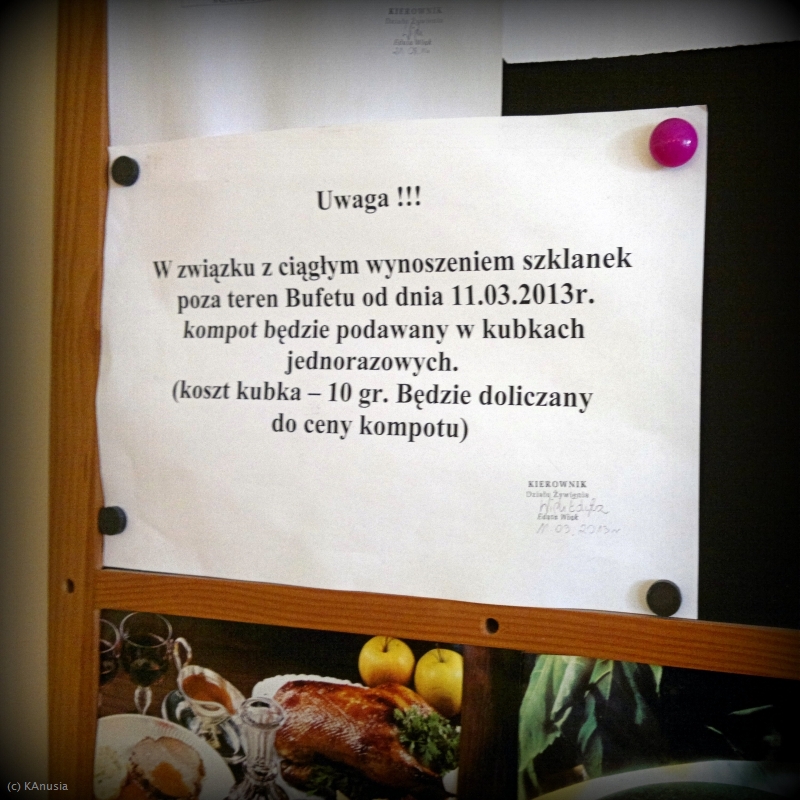 KIEROWNIK
Działu Żywienia
Edyta Wilk
Uwaga !!!
W związku z ciągłym wynoszeniem szklanek
poza teren Bufetu od dnia 11.03.2013r.
kompot będzie podawany w kubkach
jednorazowych.
(koszt kubka – 10 gr. Będzie doliczany
do ceny kompotu)
KIEROWNIK
Działu Żywienia
Edyta Wilk
11 03 2013r
(c) KAnusia